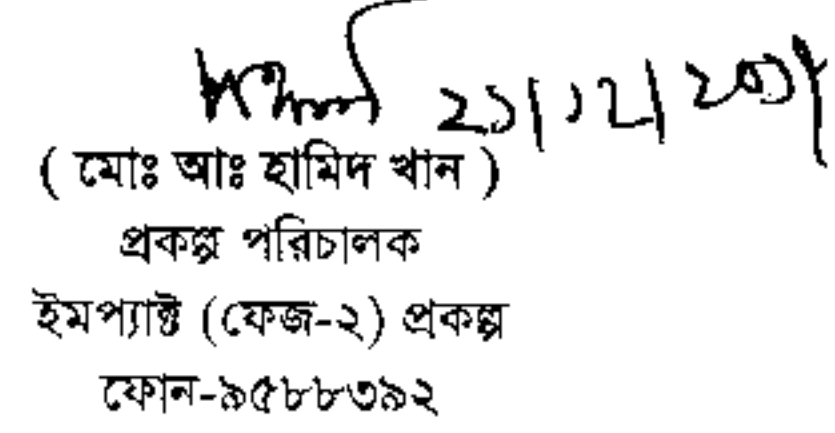 ২১/১২/২০১৮
( মোঃ আঃ হামিদ খান )
প্রকল্প পরিচালক
ইমপ্যাক্ট (ফেজ-২) প্রকল্প
ফোন-৯৫৮৮৩৯২